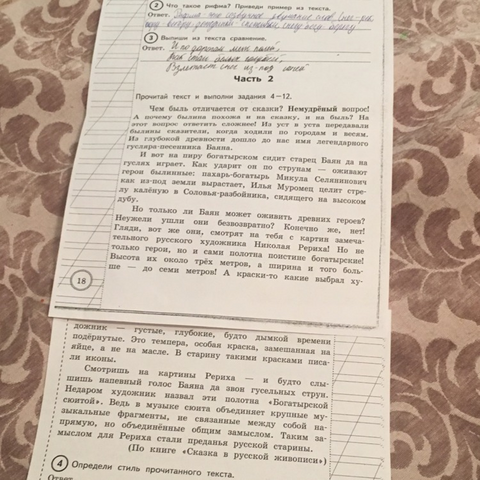 2 Что такое рифма? Приведи пример из текста.
Ответ.
3 Выпиши из текста сравнение.
Ответ. И по дорогам меж полей,
Взлетает снег из-под
Часть 2
Прочитай текст и выполни задания 4—12.
Чем быль отличается от сказки? Немудрёный вопрос!
А почему былина похожа и на сказку, и на быль? На
этот вопрос ответить сложнее! Из уст в уста передавали
былины сказители, когда ходили по городам и весям.
Из глубокой древности дошло до нас имя легендарного
гусляра-песенника Баяна.
И вот на пиру богатырском сидит старец Баян да на
гуслях играет. Как ударит он по струнам — оживают
герои былинные: пахарь-богатырь Микула Селянинович
как из-под земли вырастает, Илья Муромец целит стре-
лу калёную в Соловья-разбойника, сидящего на высоком
дубу.
Но только ли Баян может оживить древних героев?
Неужели ушли они безвозвратно? Конечно же, нет!
Гляди, вот же они, смотрят на тебя с картин замеча-
тельного русского художника Николая Рериха! Но не
только герои, но и сами полотна поистине богатырские!
Высота их около трёх метров, а ширина и того боль-
ше — до семи метров! А краски-то какие выбрал ху-
18
дожник — густые, глубокие, будто дымкой времени
подёрнутые. Это темпера, особая краска, замешанная на
яйце, а не на масле. В старину такими красками писа-
ли иконы.
Смотришь на картины Рериха — и будто слы-
шишь напевный голос Баяна да звон гусельных струн.
Недаром художник назвал эти полотна «Богатырской
сюитой». Ведь в музыке сюита объединяет крупные му-
зыкальные фрагменты, не связанные между собой на-
прямую, но объединённые общим замыслом. Таким за-
мыслом для Рериха стали преданья русской старины.
(По книге «Сказка в русской живописи»)
4 Определи стиль прочитанного текста.
Ответ